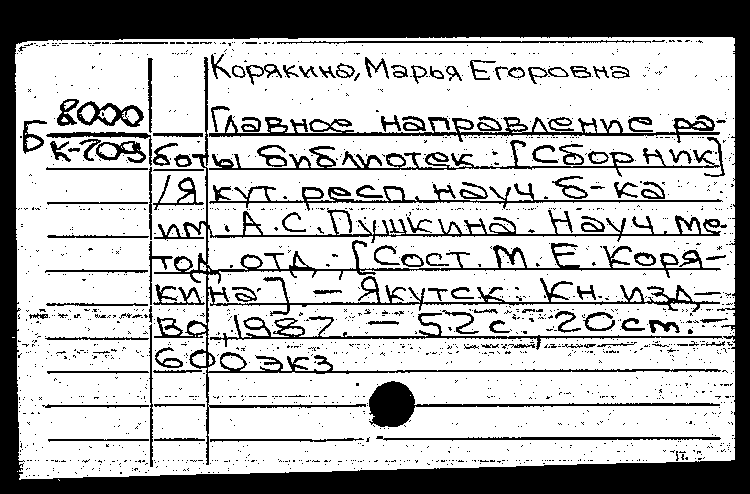 Корякина, Марья Егоровна
8000
Б
К-709
Главное направление ра-
боты библиотек: [Сборник]
/Якут. респ. науч. б-ка
им. А.С.Пушкина. Науч. ме-
тод. отд.; [Сост. М.Е.Коря-
кина]. — Якутск: Кн. изд-
во, 1987. — 52 с., 20 см. —
600 экз